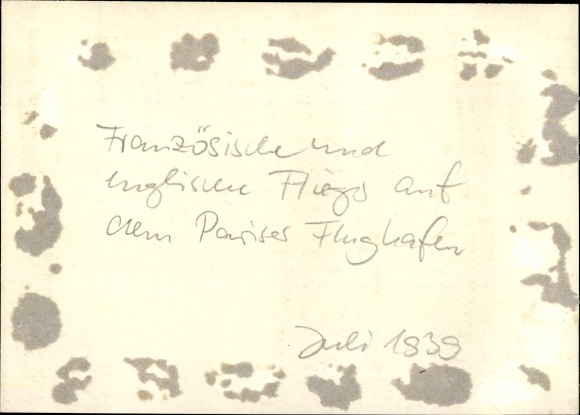 Französische und
englische Flieger auf
dem Pariser Flughafen
Juli 1939